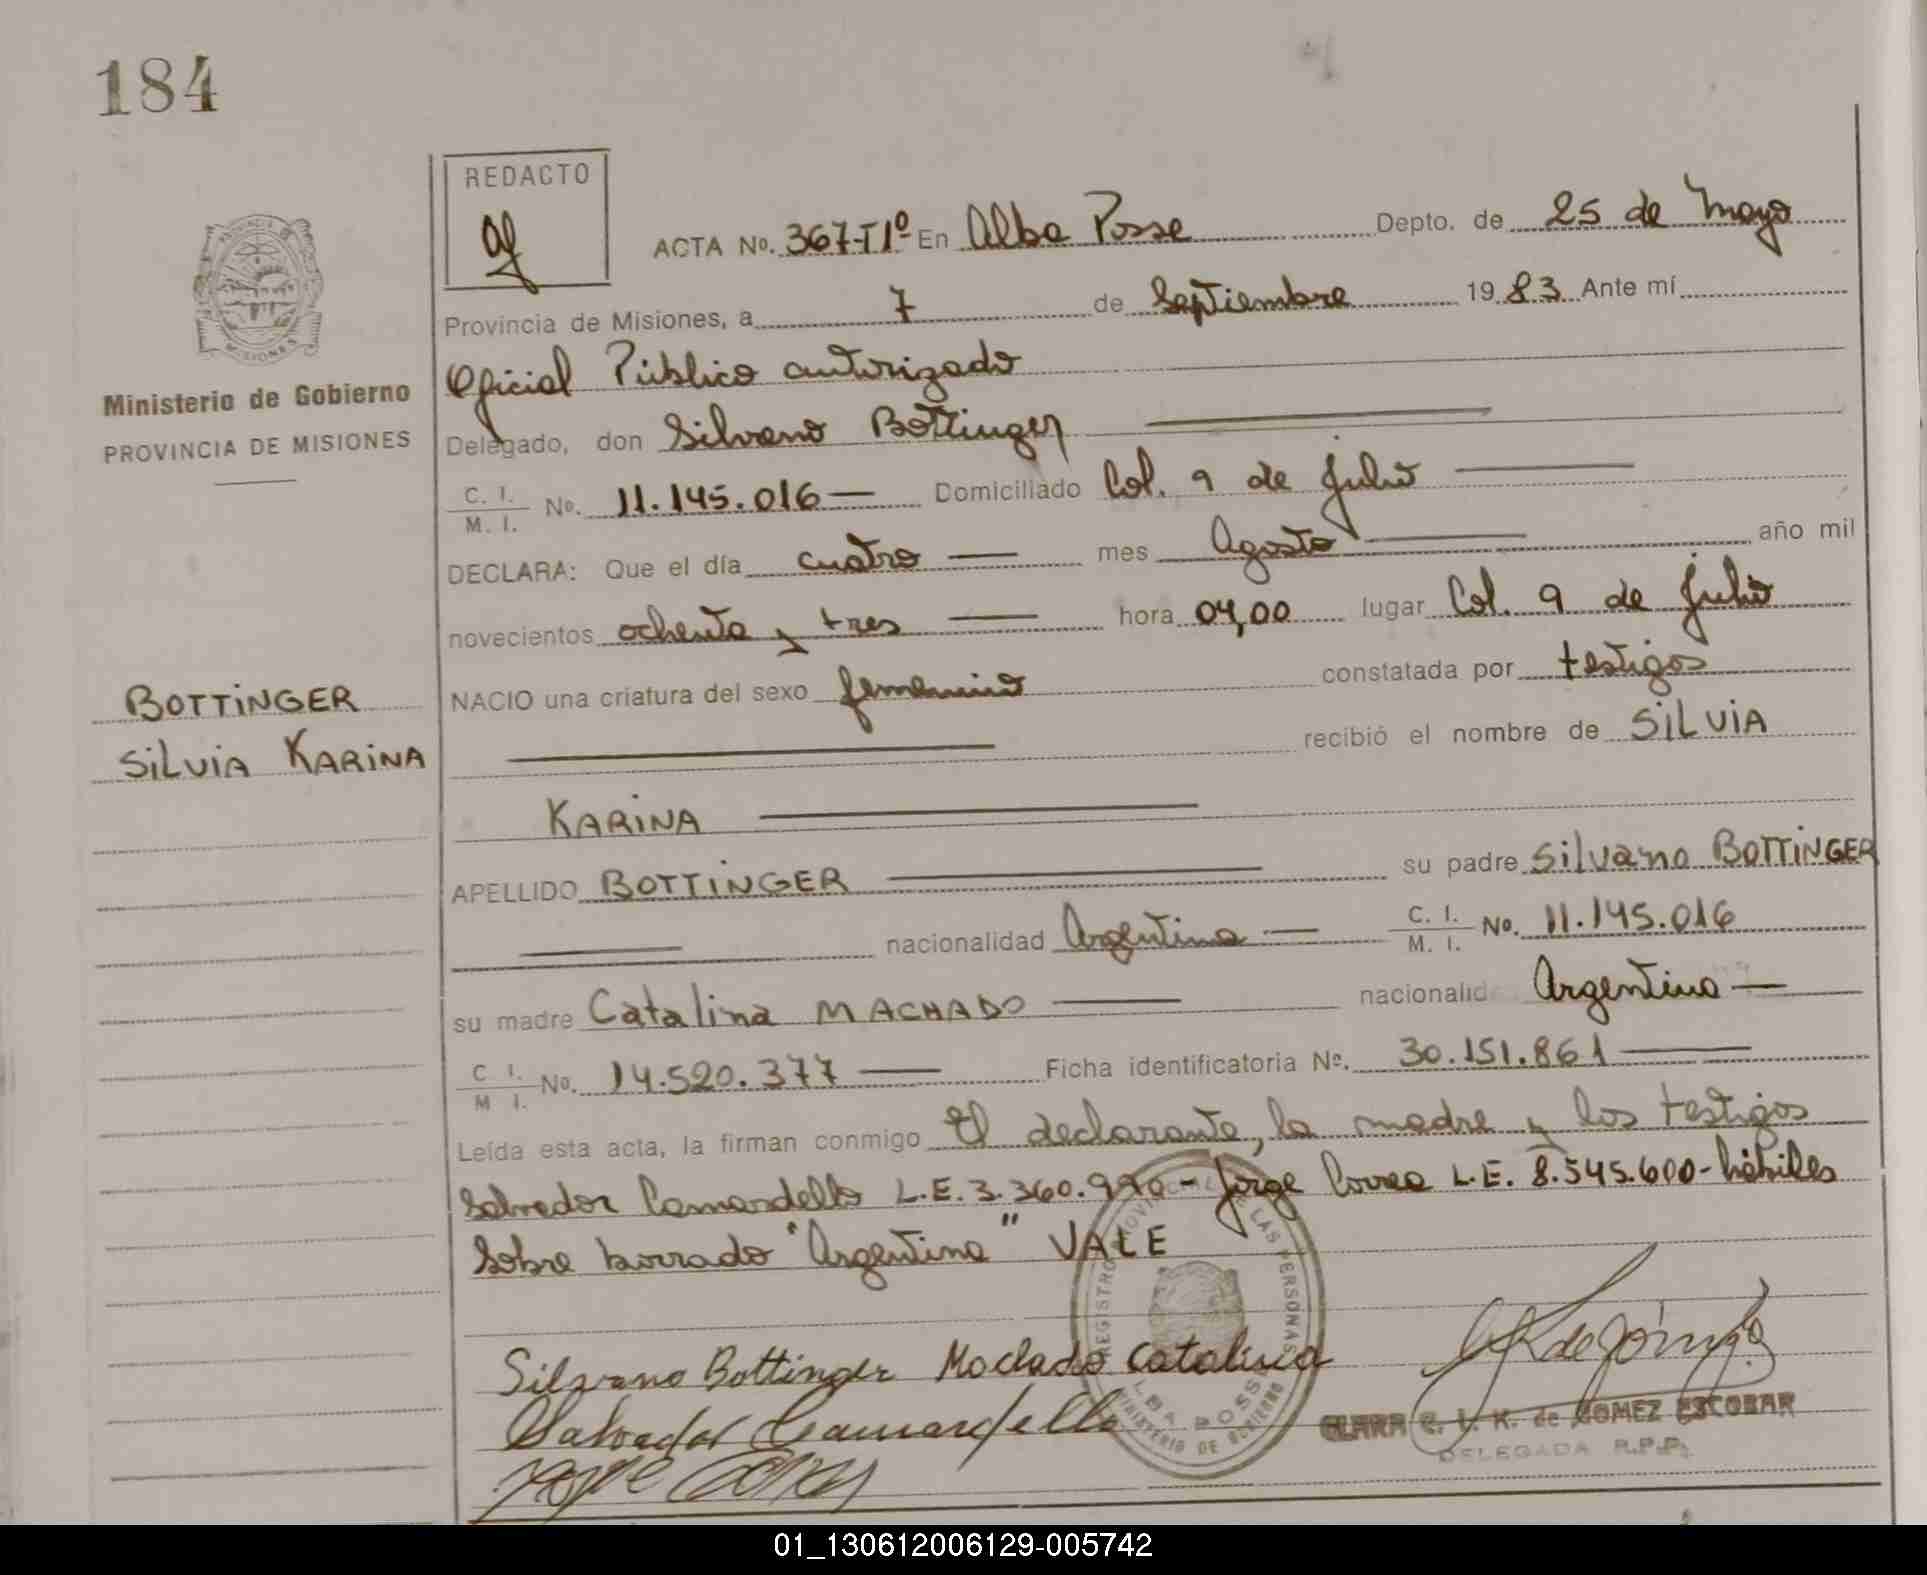 184
REDACTO
ACTA No. 367-TIº En Alba Posse Depto. de 25 de Mayo
Provincia de Misiones, a 7 de Septiembre 19 83 Ante mí
Oficial Público autorizado
Ministerio de Gobierno
PROVINCIA DE MISIONES
Delegado, don Silvano Bottinger
C. I. / M. I. No. 11.145.016 — Domiciliado Col. 9 de Julio
DECLARA: Que el día cuatro — mes Agosto — año mil
novecientos ochenta y tres — hora 04,00 lugar Col. 9 de Julio
BOTTINGER
SILVIA KARINA
NACIO una criatura del sexo femenino constatada por testigos
recibió el nombre de SILVIA
KARINA
APELLIDO BOTTINGER su padre Silvano BOTTINGER
nacionalidad Argentina — C. I. / M. I. No. 11.145.016
su madre Catalina MACHADO — nacionalid Argentina —
C I. / M I. No. 14.520.377 — Ficha identificatoria Nº. 30.151.861 —
Leída esta acta, la firman conmigo El declarante, la madre y los testigos
Salvador Camardello L.E. 3.360.990 - Jorge Correa L.E. 8.545.600 - hábiles
Sobre borrado "Argentina" VALE
Silvano Bottinger Moclado Catalina
Salvador Camardello
CLARA C. I. K. de GOMEZ ESCOBAR
DELEGADA R.P.P.
REGISTRO PROVINCIAL DE LAS PERSONAS
ALBA POSSE
MINISTERIO DE GOBIERNO
PROVINCIA DE
MISIONES
01_130612006129-005742